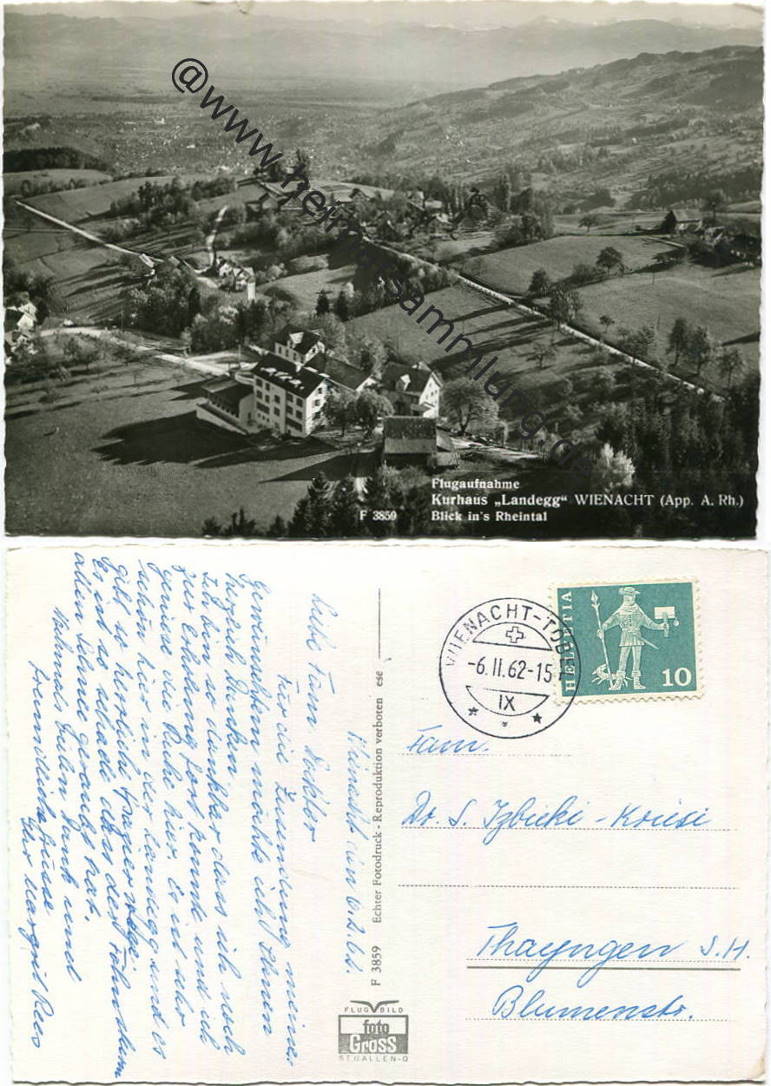 @www.heimatsammlung.de
Flugaufnahme
Kurhaus „Landegg“ WIENACHT (App. A. Rh.)
F 3859 Blick in's Rheintal
Wienacht den 6.2.62.
Liebe Frau Doktor
Für die Zusendung meiner
Gewünschten möchte ich Ihnen
herzlich danken.
Ich bin so dankbar dass ich noch
zur Erholung fort konnte und ich
genie die Ruhe hier. Es ist sehr
schön hier in der Landegg und es
gibt so herrliche Spazierwege.
Es ist so schade dass der Föhnsturm
allen Schnee geraubt hat.
Nochmals vielen Dank und
freundliche Grüsse
Ihre Margrit Rees
F 3859 Echter Fotodruck - Reproduktion verboten ese
WIENACHT-TOBEL
-6.II.62-15
IX
HELVETIA
10
Fam.
Dr. S. Izbicki-Kriesi
Thayngen S.H.
Blumenstr.
FLUGBILD
foto
GROSS
ST.GALLEN-O